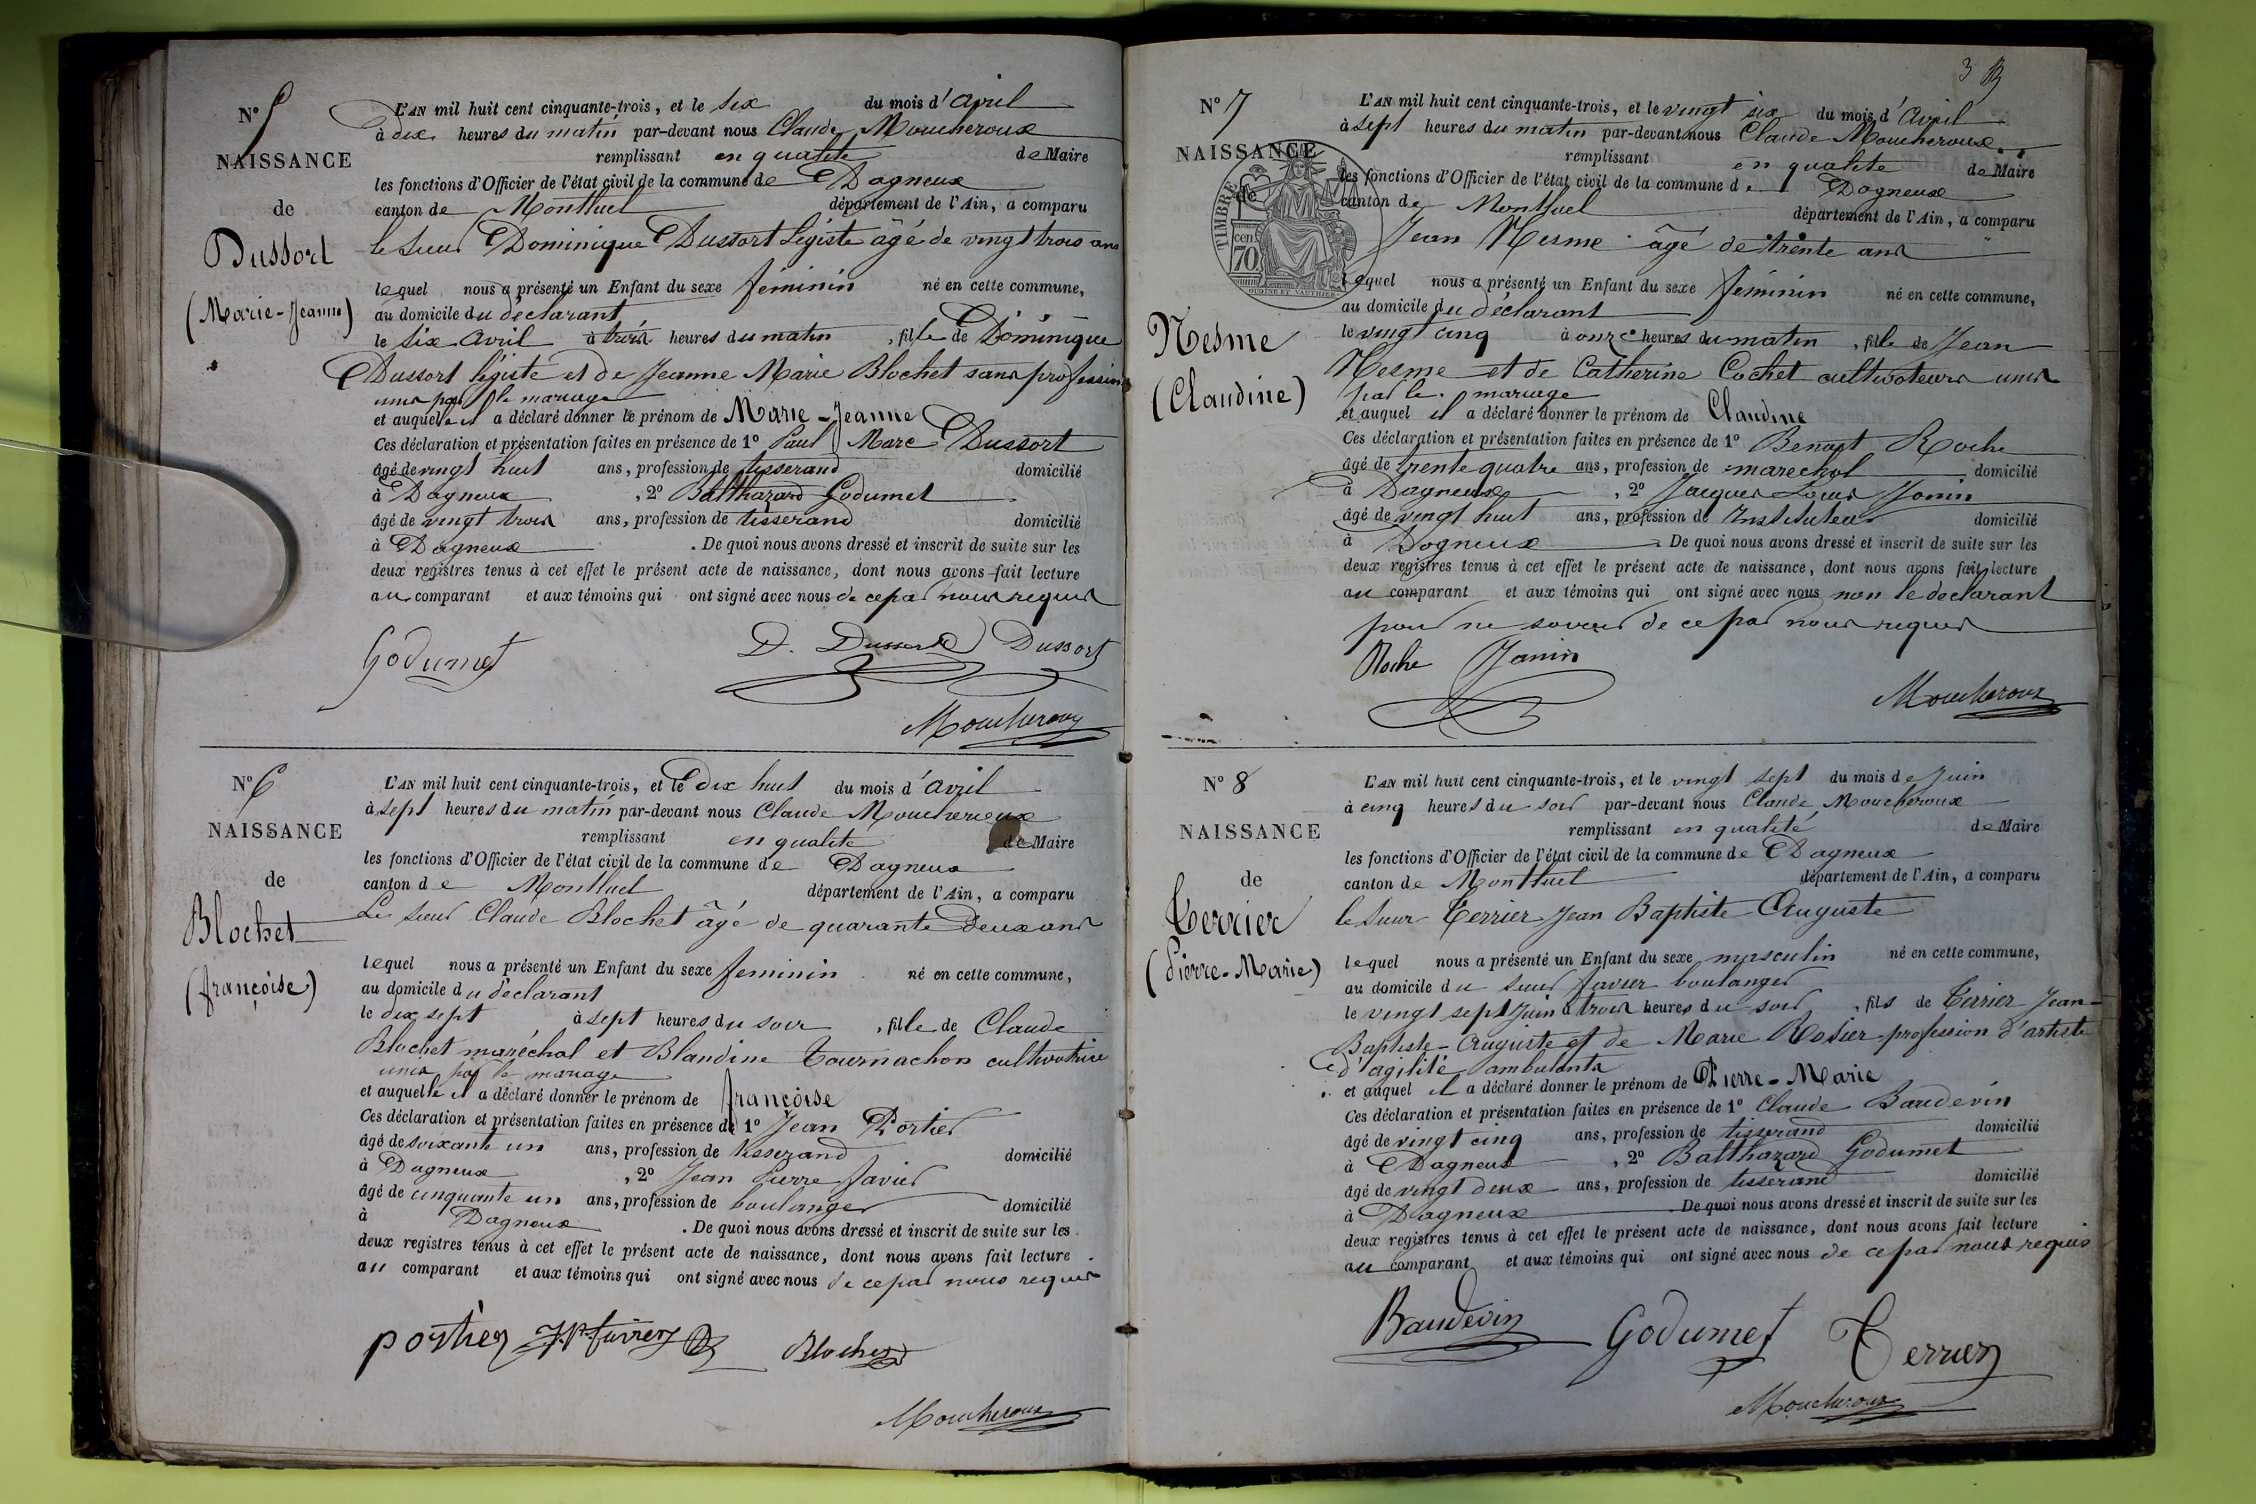 N° 5
NAISSANCE
de
Dussort
(Marie-Jeanne)
L'AN mil huit cent cinquante-trois, et le six du mois d'avril
à dix heures du matin par-devant nous Claude Moucheroux
remplissant en qualité de Maire
les fonctions d'Officier de l'état civil de la commune de Dagneux
canton de Montluel département de l'Ain, a comparu
le sieur Dominique Dussort légiste âgé de vingt trois ans
lequel nous a présenté un Enfant du sexe féminin né en cette commune,
au domicile du déclarant
le six avril à trois heures du matin, fille de Dominique
Dussort légiste et de Jeanne Marie Blochet sans profession
unis par le mariage
et auquelle il a déclaré donner le prénom de Marie-Jeanne
Ces déclaration et présentation faites en présence de 1° Paul Marc Dussort
âgé de vingt huit ans, profession de tisserand domicilié
à Dagneux, 2° Balthazard Godumet
âgé de vingt trois ans, profession de tisserand domicilié
à Dagneux. De quoi nous avons dressé et inscrit de suite sur les
deux registres tenus à cet effet le présent acte de naissance, dont nous avons fait lecture
au comparant et aux témoins qui ont signé avec nous de ce par nous requis
Godumet D. Dussort Dussort
Moucheroux
N° 6
NAISSANCE
de
Blochet
(françoise)
L'AN mil huit cent cinquante-trois, et le dix huit du mois d'avril
à sept heures du matin par-devant nous Claude Moucheroux
remplissant en qualité de Maire
les fonctions d'Officier de l'état civil de la commune de Dagneux
canton de Montluel département de l'Ain, a comparu
Le sieur Claude Blochet âgé de quarante deux ans
lequel nous a présenté un Enfant du sexe feminin né en cette commune,
au domicile du déclarant
le dix sept à sept heures du soir, fille de Claude
Blochet maréchal et Blandine Tournachon cultivatrice
unis par le mariage
et auquelle il a déclaré donner le prénom de françoise
Ces déclaration et présentation faites en présence de 1° Jean Portier
âgé de soixante un ans, profession de tisserand domicilié
à Dagneux, 2° Jean Pierre favier
âgé de cinquante un ans, profession de boulanger domicilié
à Dagneux. De quoi nous avons dressé et inscrit de suite sur les
deux registres tenus à cet effet le présent acte de naissance, dont nous avons fait lecture
au comparant et aux témoins qui ont signé avec nous de ce par nous requis
portier J.P. favier Blochet
Moucheroux
3
N° 7
NAISSANCE
de
TIMBRE
cen. 70
OUDINÉ ET VAUTHIER
Nesme
(Claudine)
L'AN mil huit cent cinquante-trois, et le vingt six du mois d'avril
à sept heures du matin par-devant nous Claude Moucheroux
remplissant en qualité de Maire
les fonctions d'Officier de l'état civil de la commune de Dagneux
canton de Montluel département de l'Ain, a comparu
Jean Nesme âgé de trente ans
lequel nous a présenté un Enfant du sexe féminin né en cette commune,
au domicile du déclarant
le vingt cinq à onze heures du matin, fille de Jean
Nesme et de Catherine Cochet cultivateurs unis
par le mariage
et auquel il a déclaré donner le prénom de Claudine
Ces déclaration et présentation faites en présence de 1° Benoit Roche
âgé de trente quatre ans, profession de marechal domicilié
à Dagneux, 2° Jacques Louis Janin
âgé de vingt huit ans, profession de Instituteur domicilié
à Dagneux. De quoi nous avons dressé et inscrit de suite sur les
deux registres tenus à cet effet le présent acte de naissance, dont nous avons fait lecture
au comparant et aux témoins qui ont signé avec nous non le déclarant
pour ne savoir de ce par nous requis
Roche Janin
Moucheroux
N° 8
NAISSANCE
de
Terrier
(Pierre-Marie)
L'AN mil huit cent cinquante-trois, et le vingt sept du mois de Juin
à cinq heures du soir par-devant nous Claude Moucheroux
remplissant en qualité de Maire
les fonctions d'Officier de l'état civil de la commune de Dagneux
canton de Montluel département de l'Ain, a comparu
le sieur Terrier Jean Baptiste Auguste
lequel nous a présenté un Enfant du sexe masculin né en cette commune,
au domicile du sieur favier boulanger
le vingt sept Juin à trois heures du soir, fils de Terrier Jean-
Baptiste-Auguiste et de Marie Rosier profession d'artiste
d'agilité ambulants
et auquel il a déclaré donner le prénom de Pierre-Marie
Ces déclaration et présentation faites en présence de 1° Claude Baudevin
âgé de vingt cinq ans, profession de tisserand domicilié
à Dagneux, 2° Balthazard Godumet
âgé de vingt deux ans, profession de tisserand domicilié
à Dagneux. De quoi nous avons dressé et inscrit de suite sur les
deux registres tenus à cet effet le présent acte de naissance, dont nous avons fait lecture
au comparant et aux témoins qui ont signé avec nous de ce par nous requis
Baudevin Godumet Terrier
Moucheroux